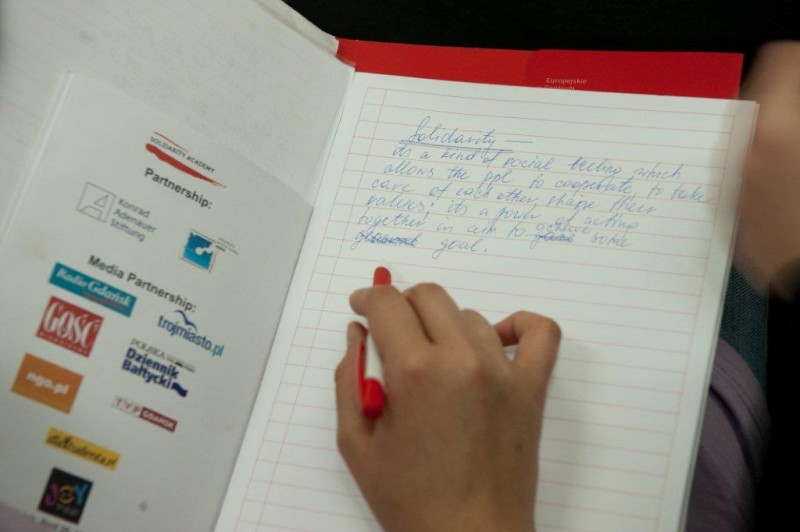 SOLIDARITY ACADEMY
Partnership:
Konrad
Adenauer
Stiftung
Media Partnership:
Radio Gdańsk
trojmiasto.pl
GOŚĆ
POLSKA
Dziennik
Bałtycki
ngo.pl
TVP GDAŃSK
dlastudenta.pl
JOY
Europejskie
Solidarity —
its a kind of social feeling which
allows the ppl to cooperate to take
care of each other, shape their
values; its a power of acting
together in aim to achive some
goal.